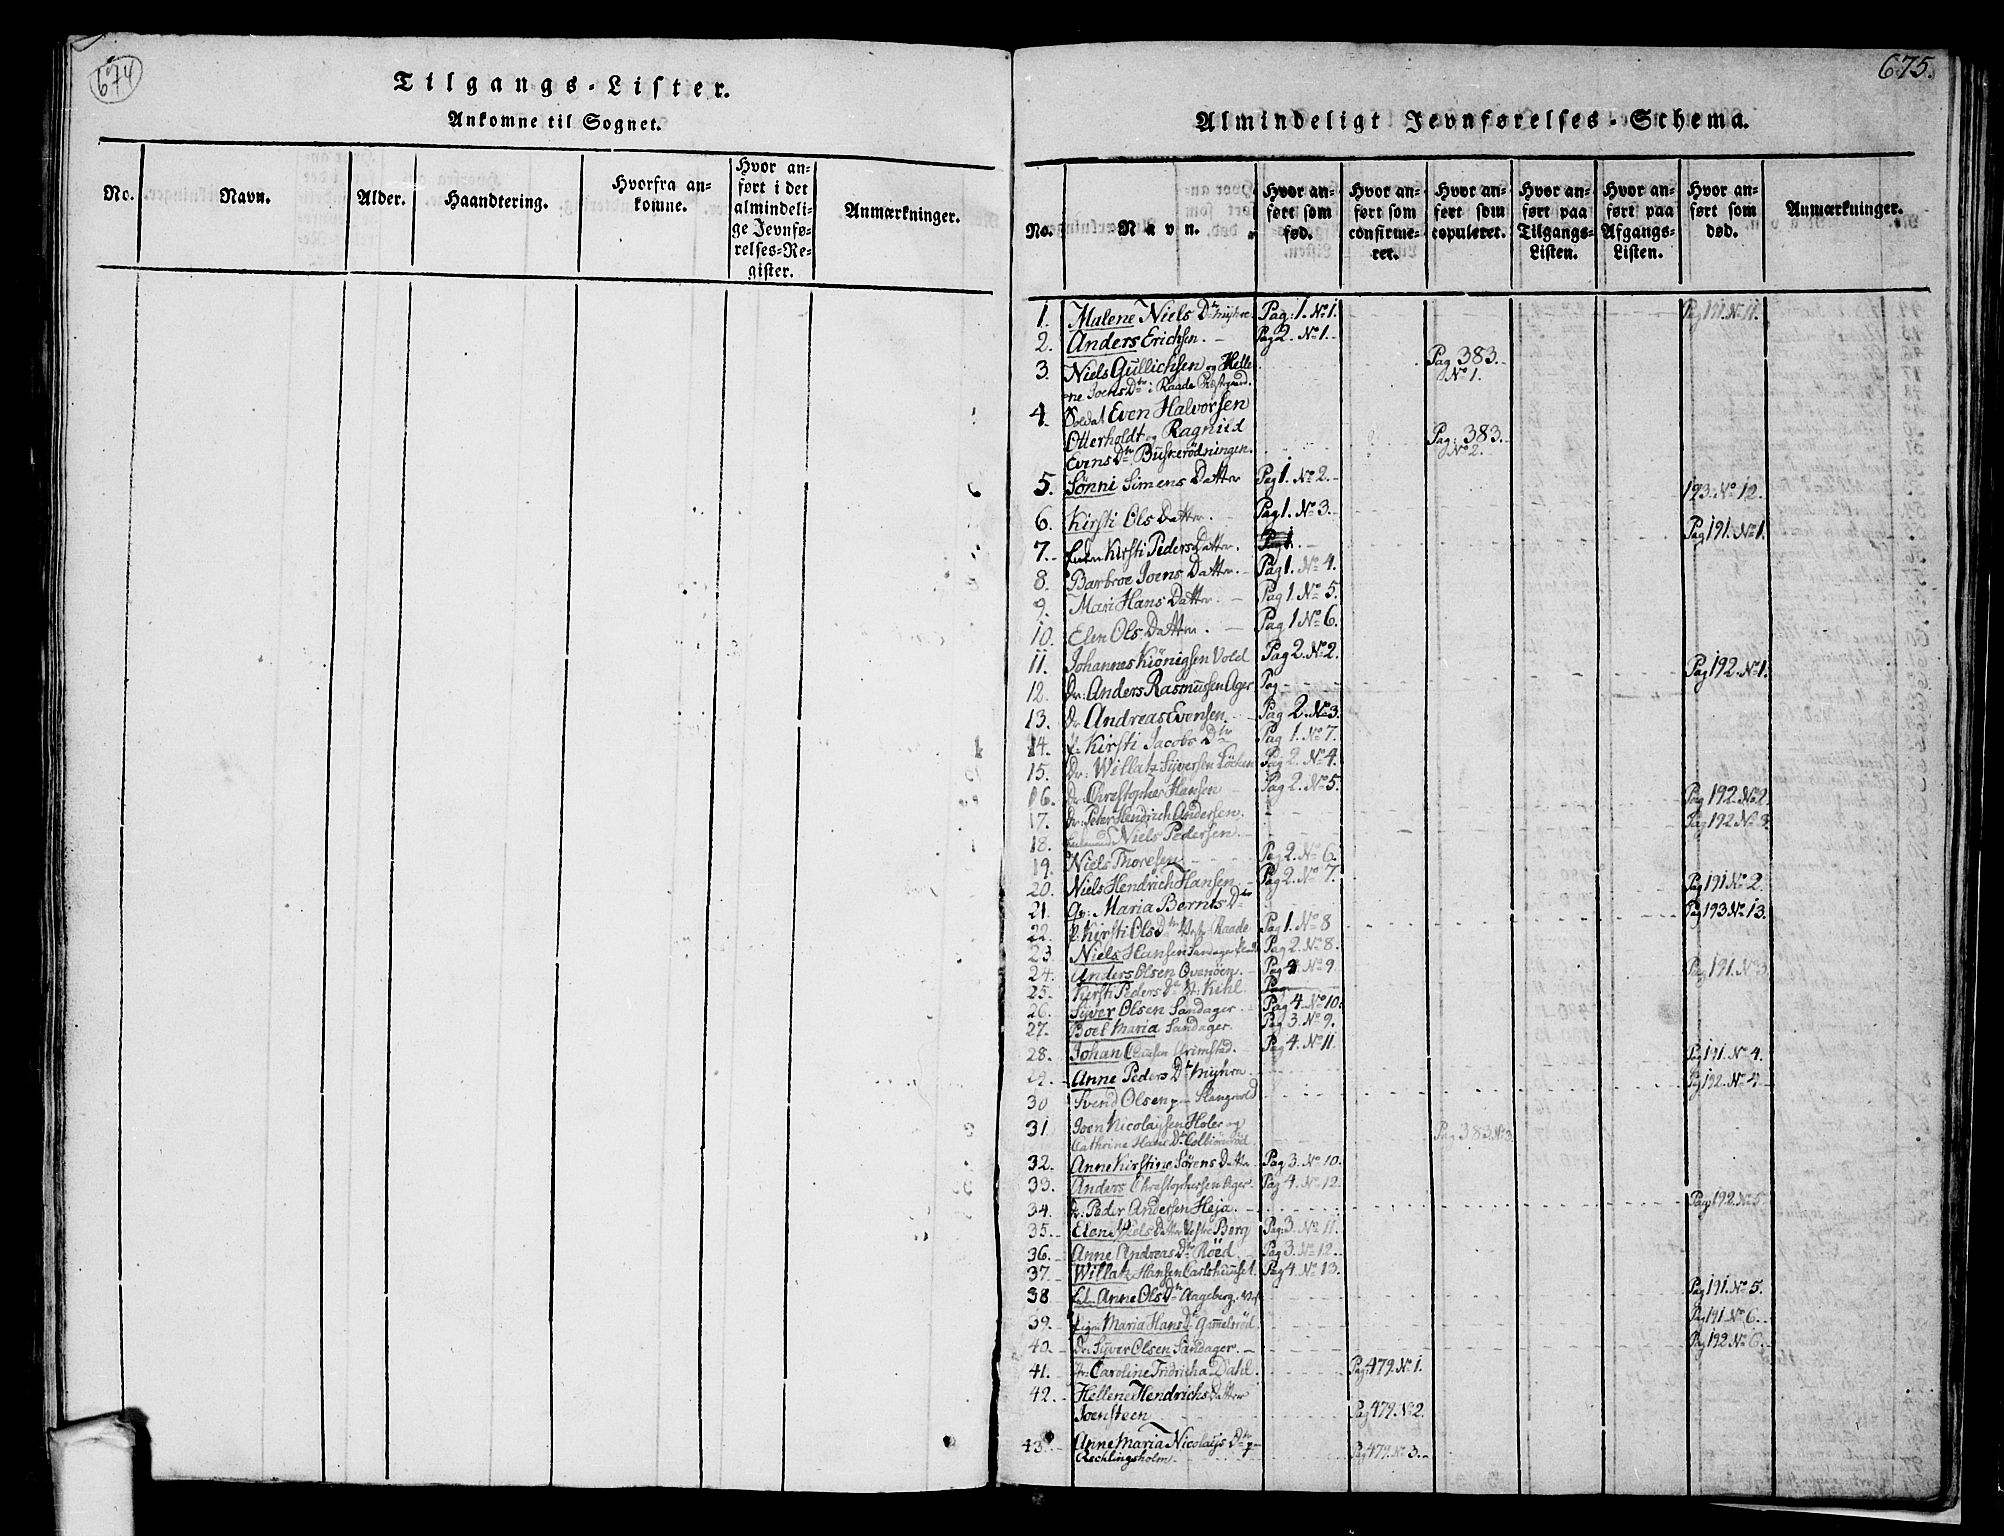 674
Tilgangs-Lister.
Ankomne til Sognet.
No.
Navn.
Alder.
Haandtering.
Hvorfra an-
komne.
Hvor an-
ført i det
almindeli-
ge Jevnfø-
relses-Re-
gister.
Anmærkninger.
675.
Almindeligt Jevnførelses-Schema.
No.
Navn.
Hvor an-
ført som
fød.
Hvor an-
ført som
confirme-
ret.
Hvor an-
ført som
copuleret.
Hvor an-
ført paa
Tilgangs-
Listen.
Hvor an-
ført paa
Afgangs-
Listen.
Hvor an-
ført som
død.
Anmærkninger.
1. Malene Niels Dtr Myhre. Pag: 1. No 1. Pag 191. No 11.
2. Anders Erichsen. Pag 2. No 1.
3. Niels Gullichsen og Helle Pag 383.
ne Joens Dtr i Raade Præstegaard. No 1.
4. Soldat Even Halvorsen
Otterholdt og Ragnild Pag: 383.
Evens Dtr Buskerødningen. No 2.
5. Sønni Simens Datter Pag 1. No 2. 193. No 12.
6. Kirsti Ols Datter. Pag 1. No 3.
7. Kirsti Peders Datter. Pag 1. Pag 191. No 1.
8. Barbroe Joens Datter. Pag 1. No 4.
9. Mari Hans Datter. Pag 1 No 5.
10. Elen Ols Datter. Pag 1 No 6.
11. Johannes Kiönigsen Vold Pag 2. No 2.
12. Dr: Anders Rasmussen Ager Pag Pag 192. No 1.
13. Dr Andreas Evensen. Pag 2. No 3.
14. P. Kirsti Jacobs Dtr Pag 1. No 7.
15. Dr: Willatz Syversen Löchen Pag 2. No 4.
16. Dr. Christopher Hansen Pag 2. No 5.
17. Dr: Peter Hendrich Andersen. Pag 192. No 2.
18. Niels Pedersen. Pag 192 No 3.
19. Niels Thoresen Pag 2. No 6.
20. Niels Hendrich Hansen Pag 2. No 7.
21. Maria Bernts Dtr Pag 191 No 2.
22. P. Kirsti Ols Dtr Raade Pag 1. No 8 Pag 193 No 13.
23. Niels Hansen Pag 2. No 8.
24. Anders Olsen Ovenöen. Pag 4. No 9
25. Kirsti Peders Dtr Kihl Pag Pag 191. No 3.
26. Syver Olsen Sandager. Pag 4. No 10.
27. Boel Maria Sandager. Pag 3. No 9.
28. Johan Grimstad. Pag 4. No 11.
29. Anne Peders Dtr Myhra. Pag 191. No 4.
30 Svend Olsen Stangvold Pag 192. No 4.
31 Joen Nicolaysen Holer og
Cathrine Hans Dtr Colbiörnröd Pag 383 No 3
32. Anne Kirstine Sörens Datter Pag 3. No 10.
33. Anders Christophersen Ager. Pag 4. No 12.
34. Dr: Peder Andersen Heja. Pag 192. No 5.
35. Elen Datter Vestre Berg Pag: 3. No 11.
36. Anne Andreas Dtr Röed. Pag 3. No 12.
37. Willatz Hansen Carlshuuset. Pag 4. No 13.
38 Anne Ols Dtr Aageberg. Pag 191. No 5.
39. Maria Hans Dtr Gammelsröd. Pag 191 No 6.
40. Dr. Syver Olsen Sandager. Pag 192 No 6.
41. Jr: Caroline Fridricha Dahl. Pag: 479. No 1.
42. Hellene Hendrichs Datter
Joensteen Pag 479. No 2.
43. Anne Maria Nicolays Dtr p
Rechlingsholm. Pag 479. No 3.